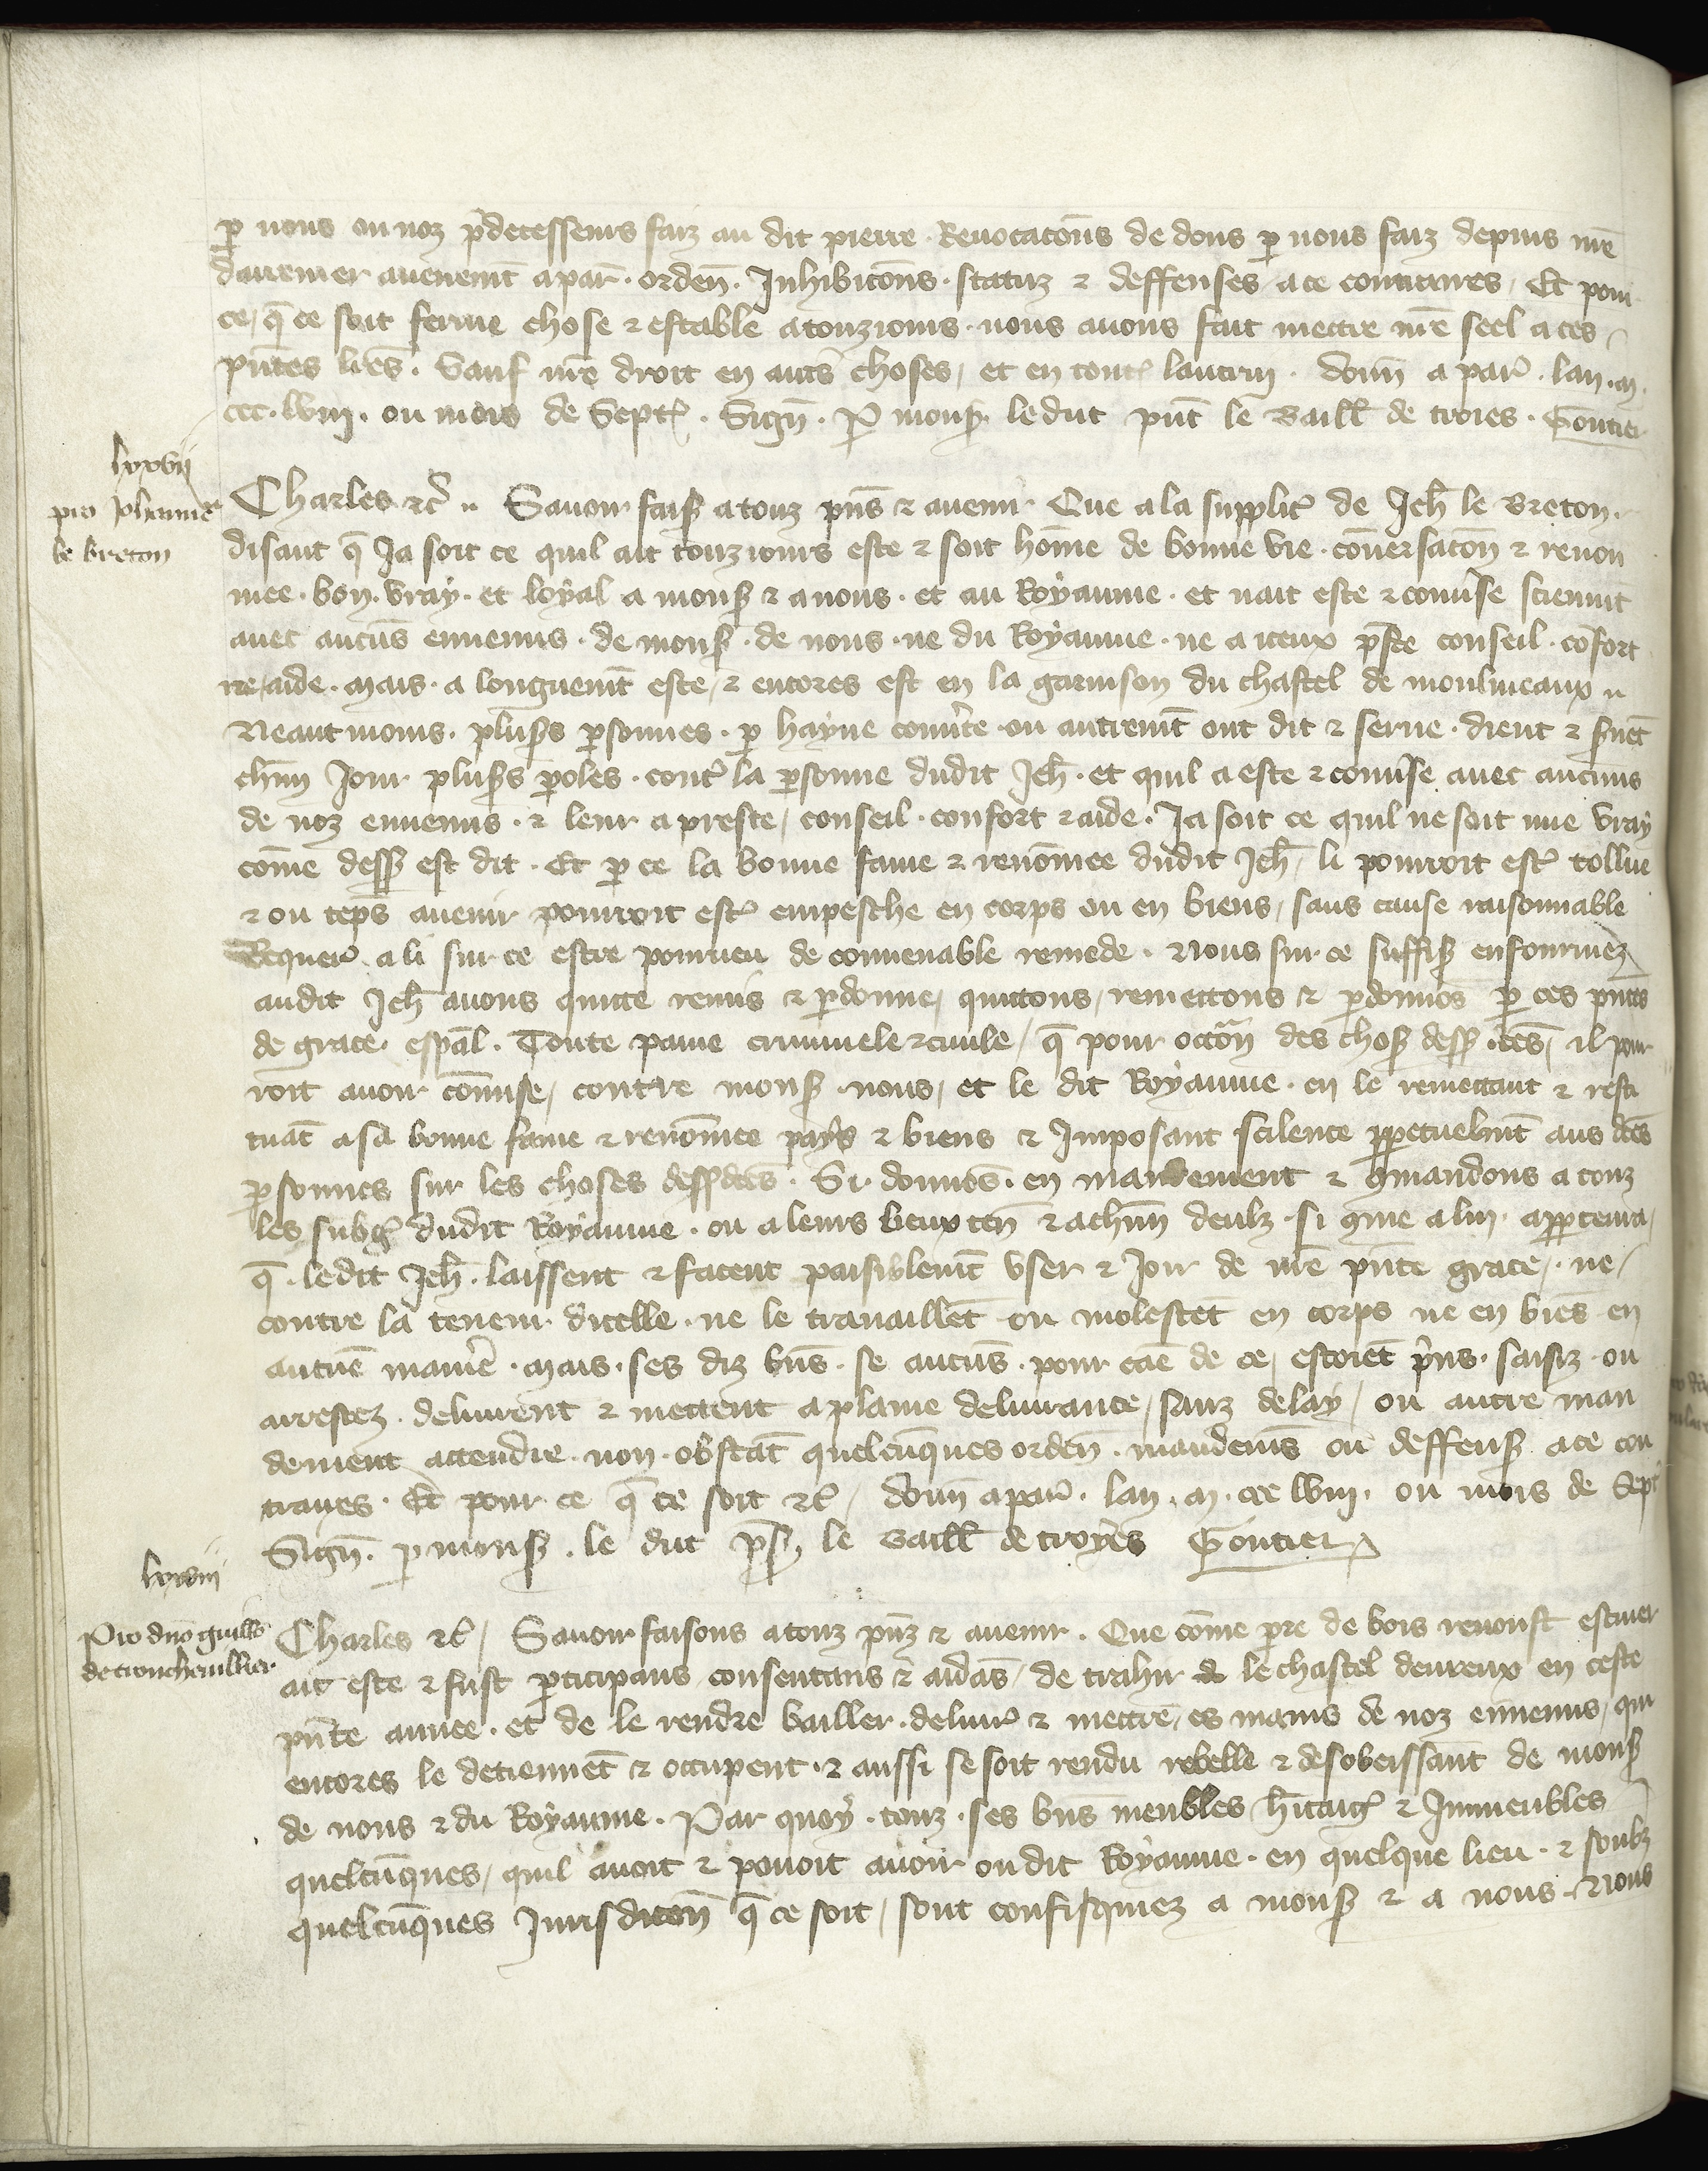 p nous ou noz pdecesseurs faiz au dit pierre . Revocacons de dons p nous faiz depuis nre
darrenier avenemt a par . orden . Inhibicons . statuz & deffenses a ce contraires / Et pour
ce / q ce soit ferme chose & estable a touziours . nous avons fait mettre nre seel a ces
pntes lres . Sauf nre droit en autres choses / et en toutes lautrui . donn a par . lan . m .
ccc . lviii . ou mois de Sept . Sign . P mons . le duc pnt le Baill de troies . Gontier
lxxvii
pro Johanne
le breton
Charles &c . Savoir fais a touz pns & avenir Que a la supplic de Jeh le Breton .
disant q Ja soit ce quil ait touziours este & soit homme de bonne vie . conversacon & renon
mee . bon . vray . et loyal a mons & a nous . et au Royaume . et nait este & comise sciemmt
avec aucuns ennemis . de mons . de nous . ne du Royaume . ne a iceux pste conseil . cofort
ne aide . mais . a longuemt este / & encores est en la garnison du chastel de moulineaux
Neantmoins . pluss psonnes . p hayne couverte ou autremt ont dit & seme . dient & sement
chun Jour pluss poles . cont la psonne dudit Jeh . et quil a este & comise avec aucuns
de noz ennemis . & leur a preste / conseil . confort & aide . Ja soit ce quil ne soit mie vray
come dess est dit . Et p ce la bonne fame & renomee dudit Jeh / li pourroit est tollue
& ou teps avenir pourroit est empesche en corps ou en biens / sans cause raisonnable
Requer a li sur ce estre pourveu de convenable remede . Nous sur ce suffis enfourmez
audit Jeh avons quitte remis & pdonne / quittons / remettons & pdonnos p ces pntes
de grace espal . Toute paine criminele & civile / q pour occon des chos dess dces / il pour
roit avoir comise / contre mons . nous / et le dit Royaume . en le remettant & resti
tuat a sa bonne fame & renomee pays & biens & Imposant scilence ppetuelmt aus dces
psonnes sur les choses dessdces . Si donnos . en mandement & 9mandons a touz
les subg dudit Royaume . ou a leurs lieux ten & a chun deulz . si 9me a lui . apptenra /
q . ledit Jeh . laissent & facent paisiblemt user & Joir de nre pnte grace . ne /
contre la teneur dicelle . ne le travaillet ou molestet en corps ne en bies en
aucune maniere . mais . ses diz bns . se aucuns . pour cae de ce / estoiet prins . saisiz . ou
arrestez . delivrent & mettent a plaine delivrance / sanz delay / ou autre man
dement attendre . non . obstat quelcuques orden . mandems ou deffens a ce con
traires . Et pour ce q ce soit &c / donn a par . lan . m . ccc lviii . ou mois de Sept
Sign . p mons . le duc ps le Baill de troyes Gontier
lxxviii
Pro dno guillo
de tronchevillier
Charles &c / Savoir faisons a touz pnz & avenir . Que come pre de bois renoust escuier
ait este & fust pticipans consentans & aidas / de trahir le chastel devreux en ceste
pnte annee . et de le rendre bailler . delivr & mettre / es mains de noz ennemis / qui
encores le detiennet & occupent . & aussi se soit rendu rebelle & desobeissant de mons
de nous & du Royaume . Par quoy . touz . ses bns meubles hitaig & Immeubles
quelcuques / quil avoit & povoit avoir ou dit Royaume . en quelque lieu . & soubz
quelcuques Jurisdicon q ce soit / sont confisquiez a mons & a nous . Nous